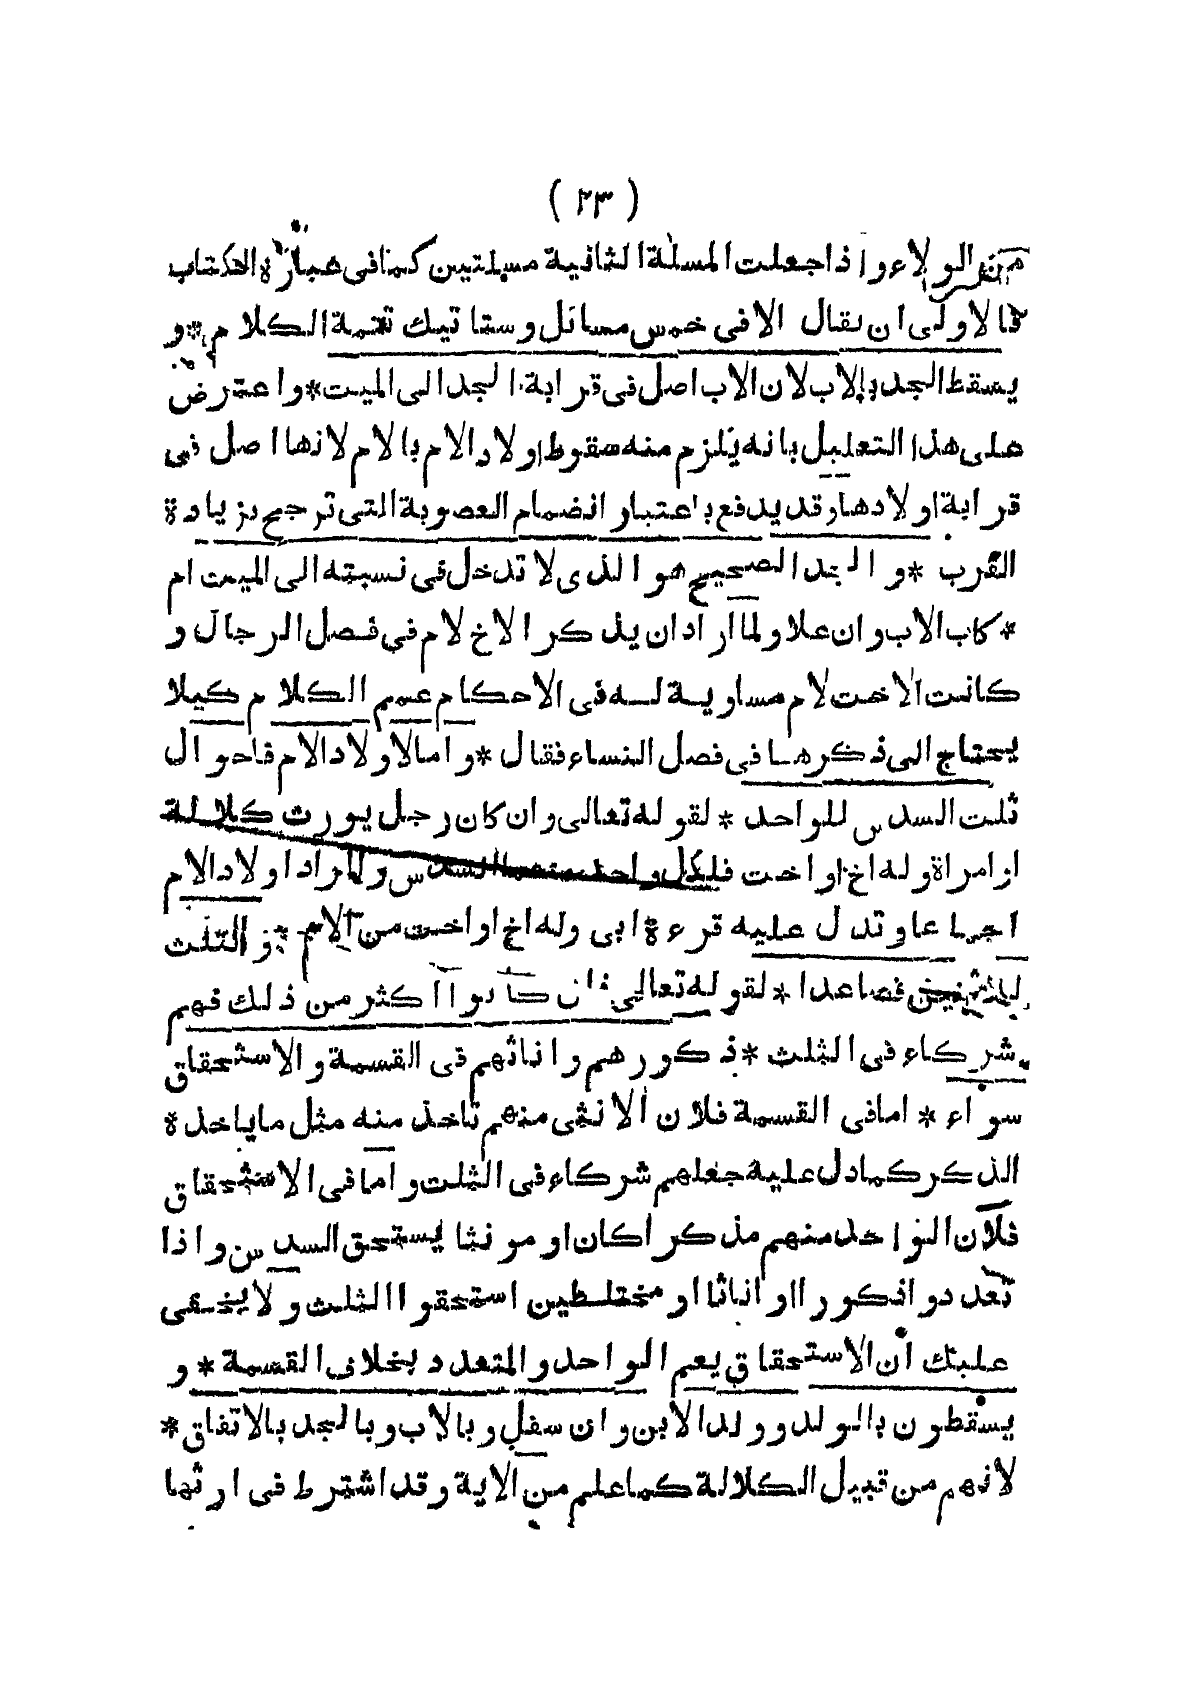 ( ٢٣ )
من الولاء واذا جعلت المسئلة الثانية مسئلتين كما فى عبارة الكتاب
فالاولى ان يقال الا فى خمس مسائل وستاتيك تتمة الكلام * و
يسقط الجد بالاب لان الاب اصل فى قرابة الجد الى الميت * واعترض
على هذا التعليل بانه يلزم منه سقوط اولاد الام بالام لانها اصل فى
قرابة اولادها وقد يدفع باعتبار انضمام العصوبة التى ترجح بزيادة
القرب * و الجد الصحيح هو الذى لا تدخل فى نسبته الى الميت ام
* كاب الاب وان علا ولما اراد ان يذكر الاخ لام فى فصل الرجال و
كانت الاخت لام مساوية له فى الاحكام عمم الكلام كيلا
يحتاج الى ذكرها فى فصل النساء فقال * واما لاولاد الام فاحوال
ثلث السدس للواحد * لقوله تعالى وان كان رجل يورث كلالة
او امراة وله اخ او اخت فلكل واحد منهما السدس والمراد اولاد الام
اجماعا وتدل عليه قرءة ابى وله اخ او اخت من الام * و الثلث
للاثنين فصاعدا * لقوله تعالى فان كانوا اكثر من ذلك فهم
شركاء فى الثلث * ذكورهم واناثهم فى القسمة والاستحقاق
سواء * اما فى القسمة فلان الانثى منهم تاخذ منه مثل ماياخذه
الذكر كما دل عليه جعلهم شركاء فى الثلث واما فى الاستحقاق
فلان الواحد منهم مذكرا كان او مونثا يستحق السدس واذا
تعددوا ذكورا او اناثا او مختلطين استحقوا الثلث ولا يخفى
عليك ان الاستحقاق يعم الواحد والمتعدد بخلاف القسمة * و
يسقطون بالولد وولد الابن وان سفل وبالاب وبالجد بالاتفاق *
لانهم من قبيل الكلالة كما علم من الاية وقد اشترط فى ارثها